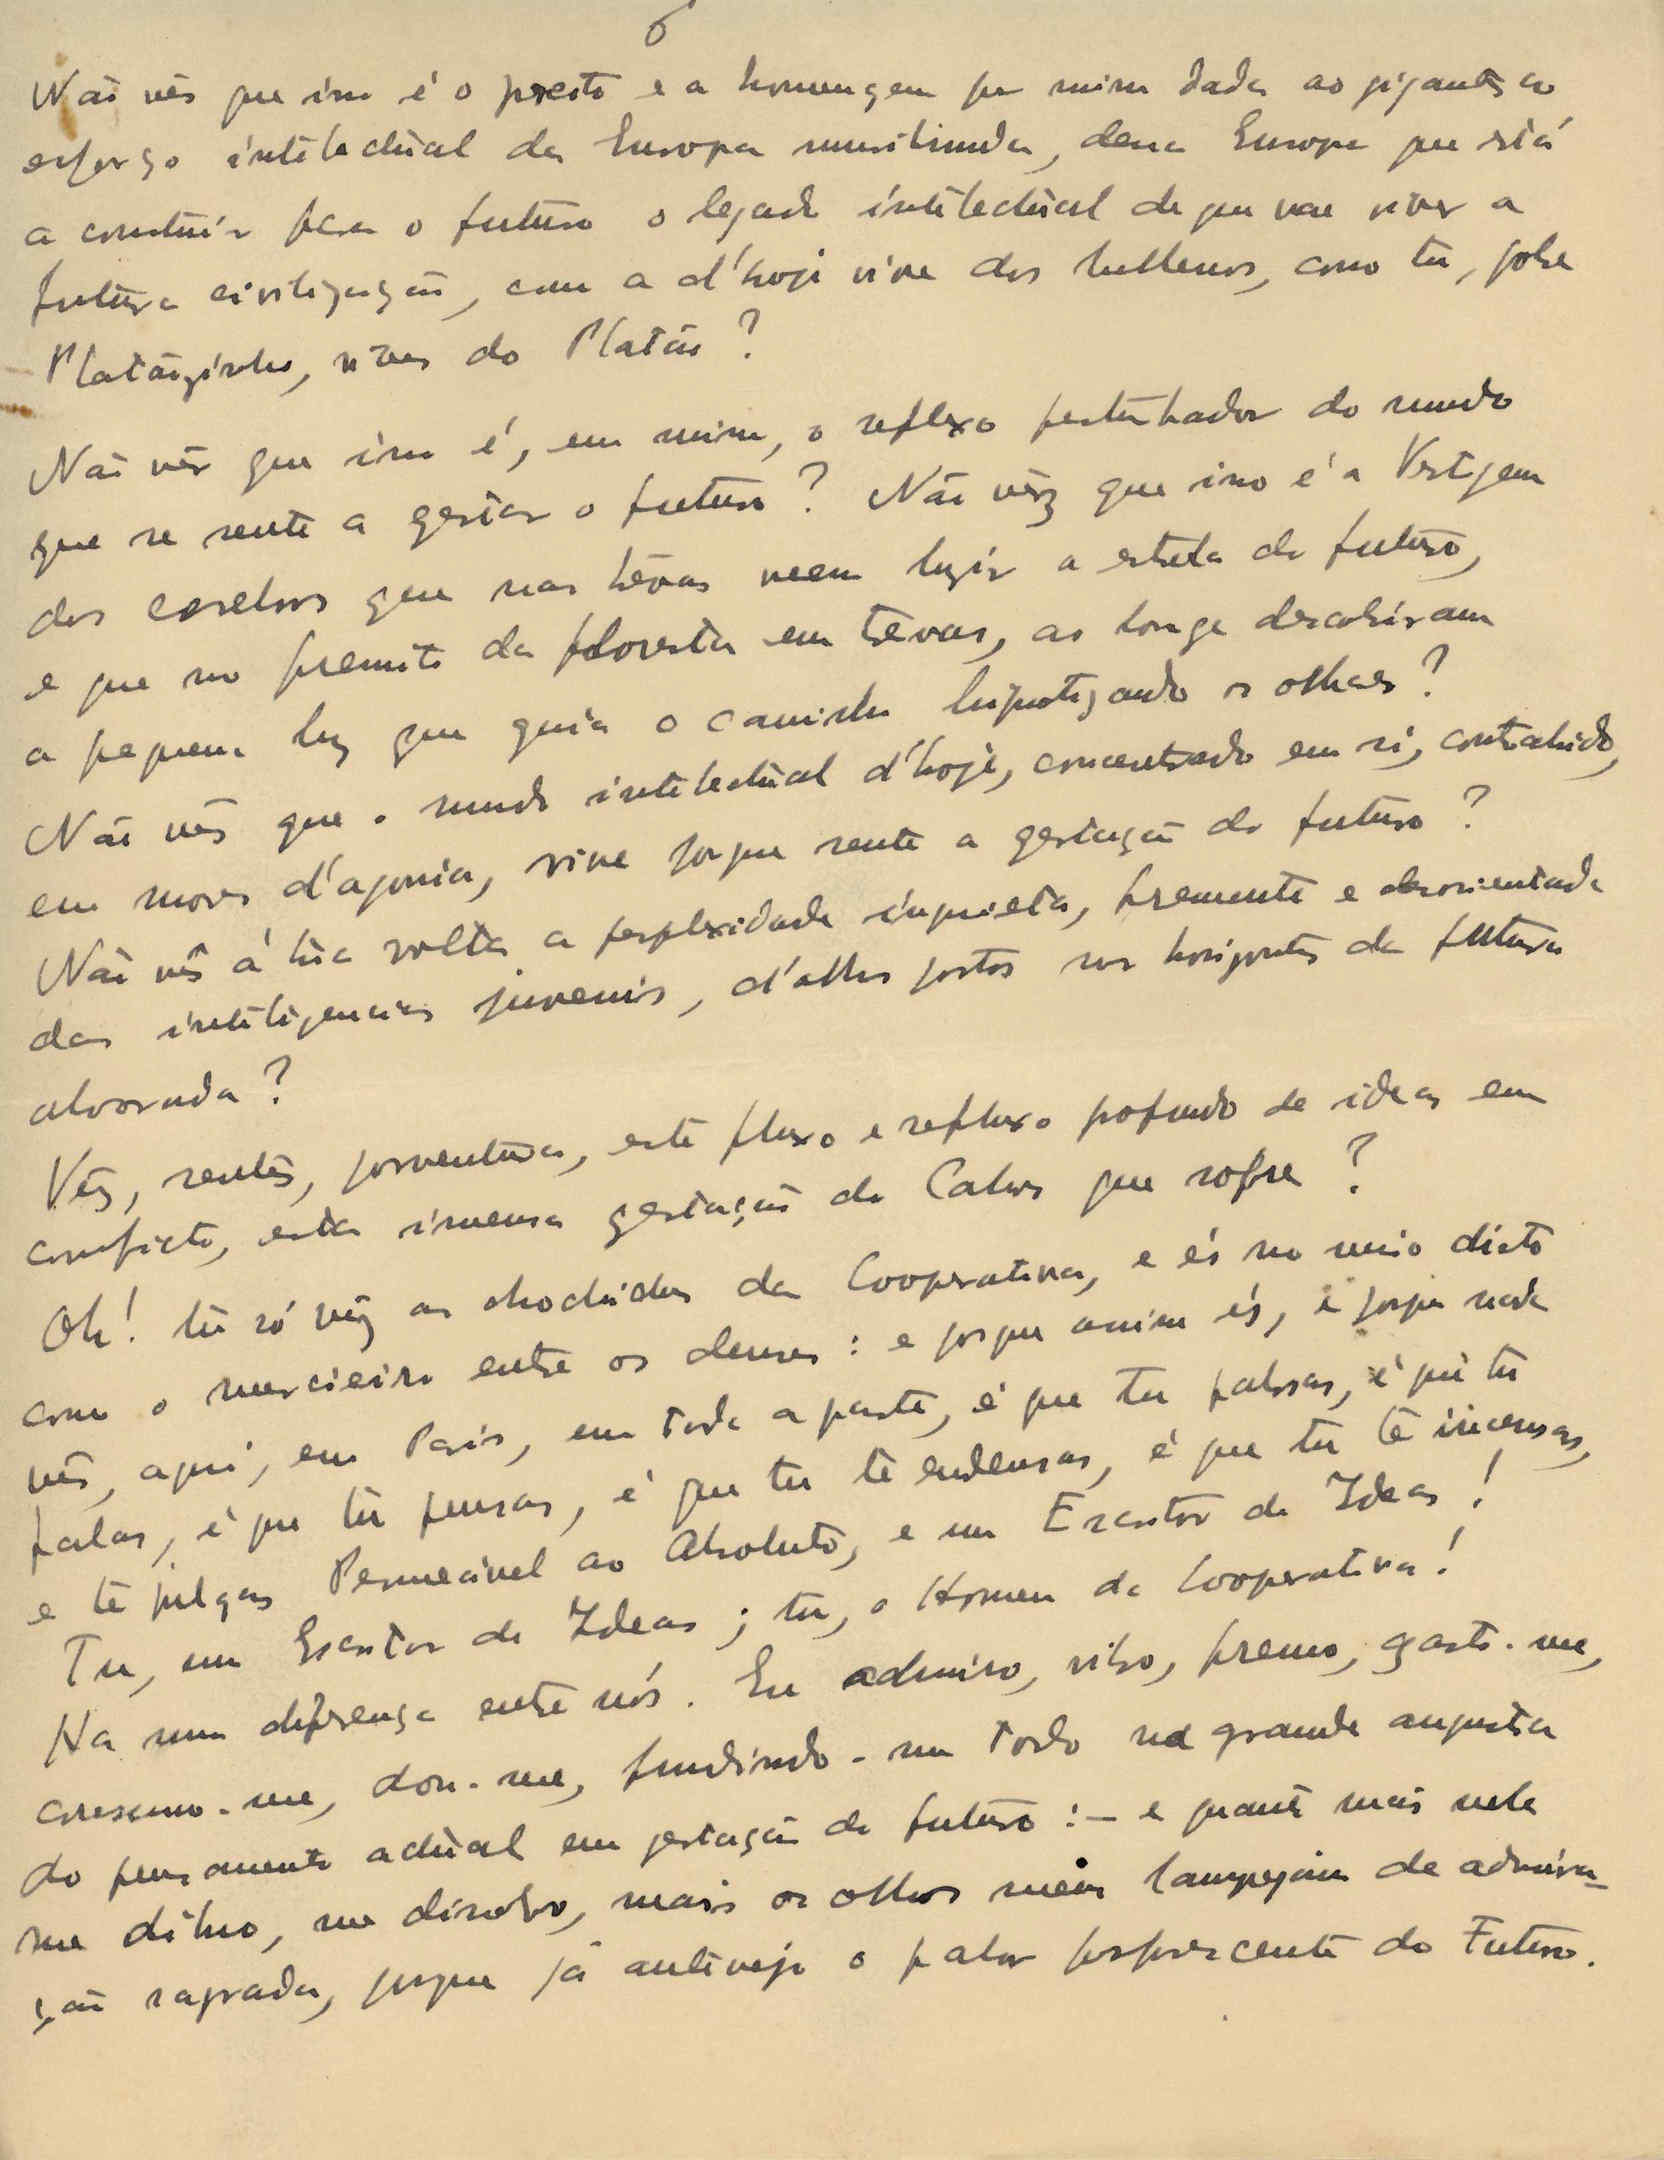 6
Não vês que isso é o preito e a homenagem por mim dada ao gigantesco
esforço intelectual da Europa moribunda, dessa Europa que está
a construir para o futuro o legado intelectual de que vae viver a
futura civilização, como a d'hoje vive dos hellenos, como tu, pobre
Platãozinho, vives do Platão?
Não vês que isso é, em mim, o reflexo perturbador do mundo
que se sente a gestar o futuro? Não vêz que isso é a Vertigem
dos cerebros que nas trevas veem luzir a estrela do futuro,
e que no fremito da floresta em trevas, ao longe descobriram
a pequena luz que guia o caminho hipnotizando os olhares?
Não vês que o mundo intelectual d'hoje, concentrado em si, contrahido,
em mores d'agonia, vive porque sente a gestação do futuro?
Não vês á tua volta a perplexidade inquieta, fremente e desorientada
das inteligencias juvenis, d'olhos postos nos horizontes da futura
alvorada?
Vês, sentes, porventura, este fluxo e refluxo profundo de ideas em
conflicto, esta imensa gestação do Cahos que sofre?
Oh! tu só vêz as chochidas da Cooperativa, e és no meio disto
como o mercieiro entre os deuses: e porque assim és, e porque nada
vês, aqui, em Paris, em toda a parte, é que tu palras, é que tu
falas, é que tu pensas, é que tu te endeusas, é que tu te incensas,
e te julgas Permeável ao Absoluto, e um Escritor de Ideas!
Tu, um Escritor de Ideas; tu, o Homem da Cooperativa!
Ha uma diferença entre nós. Eu admiro, vibro, fremo, gasto-me,
consumo-me, dou-me, fundindo-me todo na grande angustia
do pensamento actual em gestação do futuro:- e quanto mais nele
me diluo, me dissolvo, mais os olhos meus lampejam de admira-
ção sagrada, porque já antevejo o palor fosforescente do Futuro.